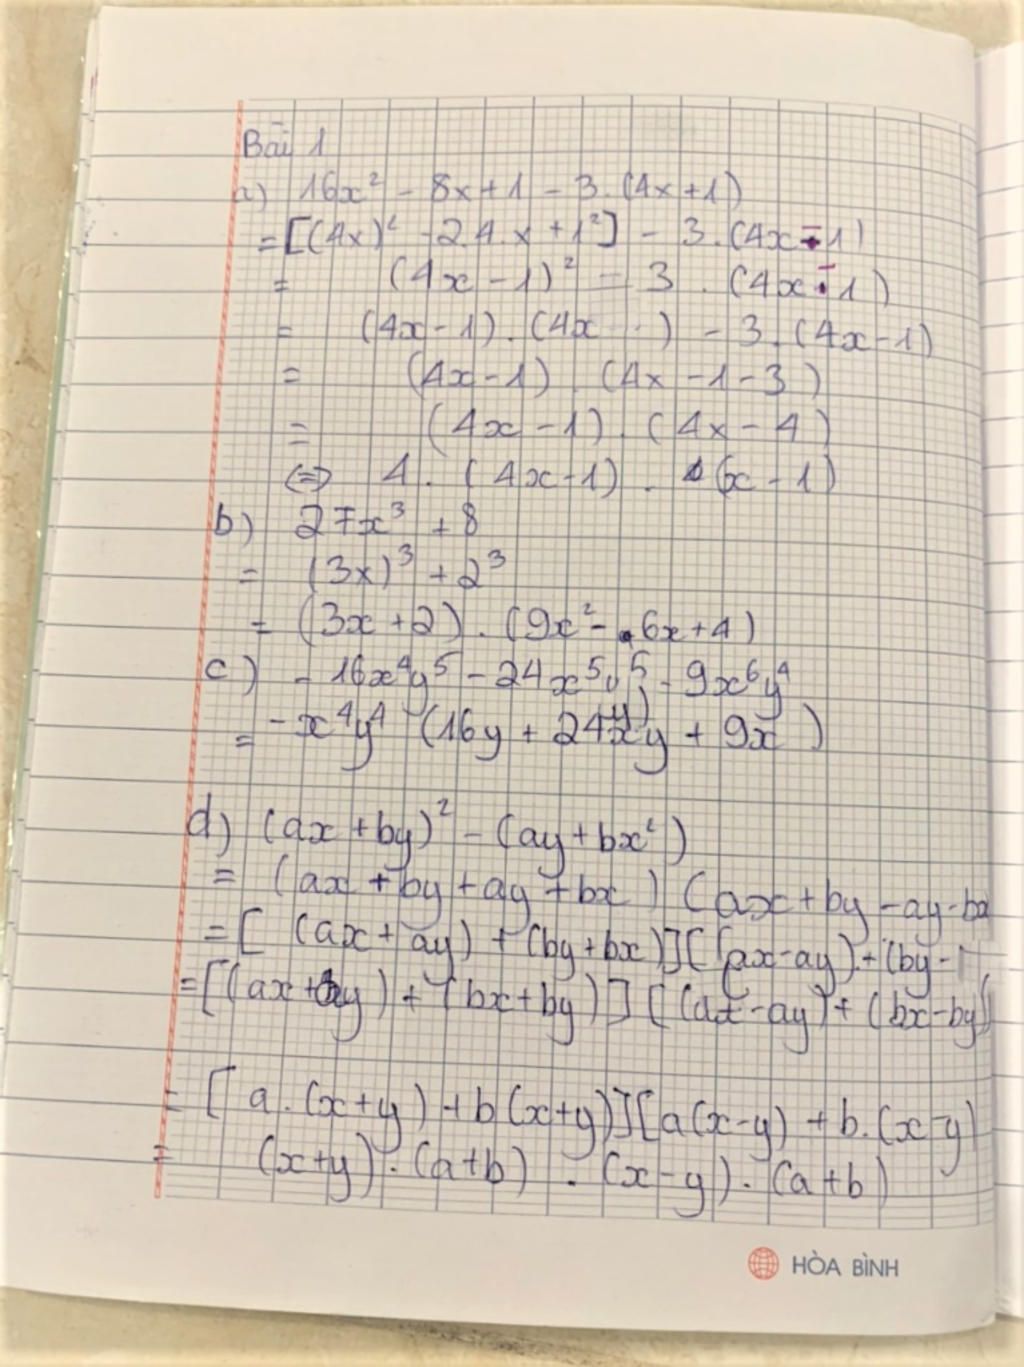 Bài 1
a) 16x² - 8x + 1 - 3.(4x+1)
= [(4x)² - 2.4.x + 1²] - 3.(4x-1)
= (4x-1)² - 3.(4x-1)
= (4x-1).(4x ) - 3.(4x-1)
= (4x-1).(4x-1-3)
= (4x-1).(4x-4)
(=) 4.(4x-1).(x-1)
b) 27x³ + 8
= (3x)³ + 2³
= (3x+2).(9x²-6x+4)
c) - 16x⁴y⁵ - 24x⁵y⁵ - 9x⁶y⁴
= -x⁴y⁴ (16y + 24xy + 9x )
d) (ax+by)² - (ay+bx²)
= (ax+by+ay+bx) (ax+by-ay-bx
= [(ax+ay)+(by+bx)][(ax-ay)+(by-
= [(ax+ay)+(bx+by)][(ax-ay)+(bx-by)]
= [a.(x+y)+b(x+y)][a(x-y)+b.(x-y)
= (x+y).(a+b).(x-y).(a+b)
HÒA BÌNH